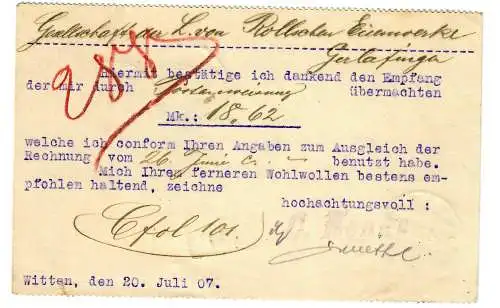 Gesellschaft der L. von Rollschen Eisenwerke
Gerlafingen
hiermit bestätige ich dankend den Empfang
der mir durch Postanweisung übermachten
Mk.: 18.62
welche ich conform Ihren Angaben zum Ausgleich der
Rechnung vom 26. Junie c. benutzt habe.
Mich Ihren ferneren Wohlwollen bestens em-
pfohlen haltend, zeichne
hochachtungsvoll :
Cfol 101.
Witten, den 20. Juli 07.